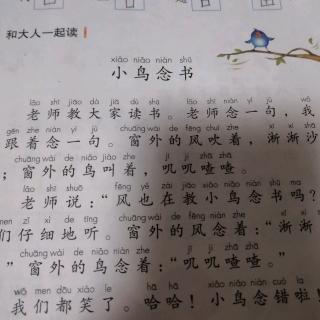 和大人一起读
xiǎo niǎo niàn shū
小鸟念书
lǎo shī jiāo dà jiā dú shū lǎo shī niàn yí jù wǒ
老师教大家读书。老师念一句，我
gēn zhe niàn yí jù chuāng wài de fēng chuī zhe
跟着念一句。窗外的风吹着，淅淅沙
chuāng wài de niǎo jiào zhe jī jī zhā zhā
；窗外的鸟叫着，叽叽喳喳。
lǎo shī shuō fēng yě zài jiāo xiǎo niǎo niàn shū ma
老师说：“风也在教小鸟念书吗？
men zǐ xì de tīng chuāng wài de fēng niàn zhe
们仔细地听。窗外的风念着：“淅淅
chuāng wài de niǎo niàn zhe jī jī zhā zhā
”窗外的鸟念着：“叽叽喳喳。”
wǒ men dōu xiào le hā hā xiǎo niǎo niàn cuò la
我们都笑了。哈哈！小鸟念错啦！